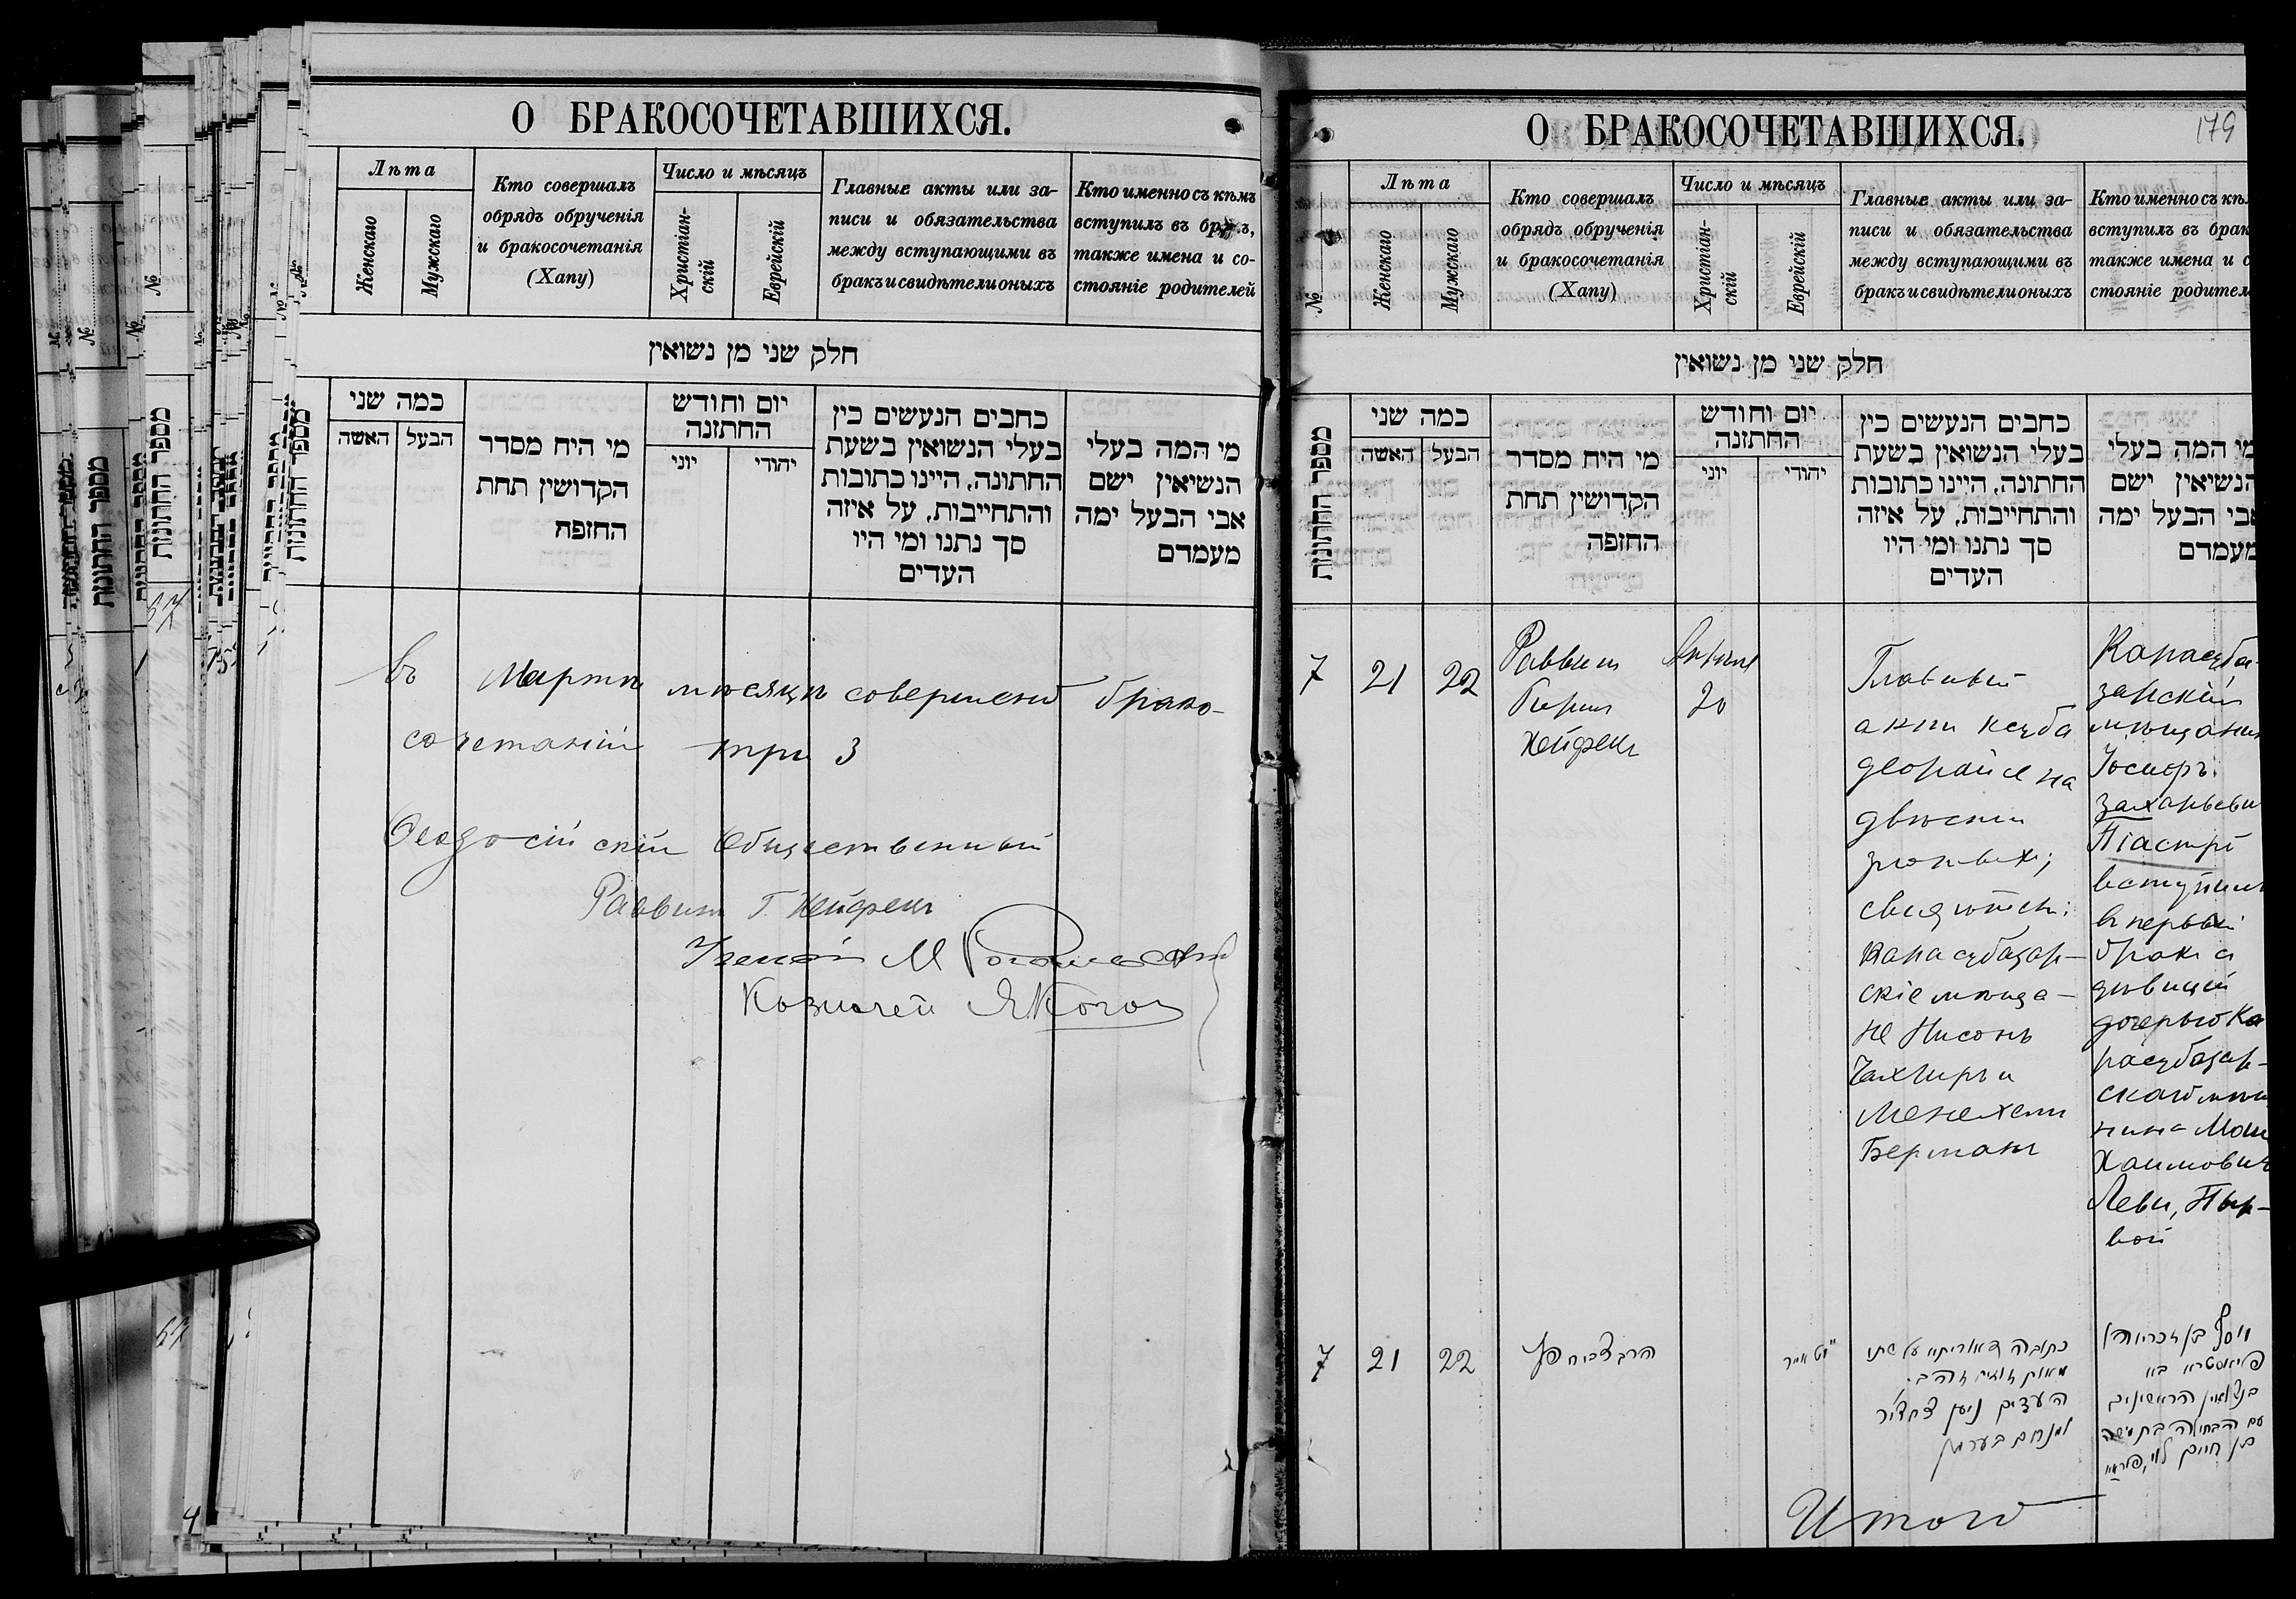 О БРАКОСОЧЕТАВШИХСЯ.
Лѣта
Женскаго
Мужскаго
Кто совершалъ
обрядъ обрученія
и бракосочетанія
(Хапу)
Число и мѣсяцъ
Христіан-
скій
Еврейскій
Главные акты или за-
писи и обязательства
между вступающими въ
бракъ и свидѣтели оныхъ
Кто именно съ кѣмъ
вступилъ въ бракъ,
также имена и со-
стояніе родителей
חלק שני מן נשואין
כמה שני
האשה הבעל
מי היח מסדר
הקדושין תחת
החופה
יום וחודש
החתונה
יוני יהודי
כתבים הנעשים בין
בעלי הנשואין בשעת
החתונה, היינו כתובות
והתחייבות, על איזה
סך נתנו ומי היו
העדים
מי המה בעלי
הנשיאין ישם
אבי הבעל ימה
מעמדם
מספר החתונות
Въ Мартѣ мѣсяцѣ совершено брако-
сочетаній три 3
Ѳеодосійскій Общественный
Раввинъ Г. Хейфецъ
Ученый М
Казначей Я Коген
О БРАКОСОЧЕТАВШИХСЯ.
179
№
Лѣта
Женскаго
Мужскаго
Кто совершалъ
обрядъ обрученія
и бракосочетанія
(Хапу)
Число и мѣсяцъ
Христіан-
скій
Еврейскій
Главные акты или за-
писи и обязательства
между вступающими въ
бракъ и свидѣтели оныхъ
Кто именно съ кѣм
вступилъ въ брак
также имена и с
стояніе родител
חלק שני מן נשואין
מספר החתונות
כמה שני
האשה הבעל
מי היח מסדר
הקדושין תחת
החופה
יום וחודש
החתונה
יוני יהודי
כתבים הנעשים בין
בעלי הנשואין בשעת
החתונה, היינו כתובות
והתחייבות, על איזה
סך נתנו ומי היו
העדים
מי המה בעלי
הנשיאין ישם
אבי הבעל ימה
מעמדם
7 21 22
Раввинъ
Гирш
Хейфецъ
Апрѣля
20
Главный
актъ кецуба
деорайсе на
двѣсти
злотыхъ;
свидѣтели:
Карасубазар-
скіе мѣща-
не Нисонъ
Чахчиръ и
Менахемъ
Берманъ
Карасуба-
зарскій
мѣщанин
Іосифъ
Захарьеви
Піастро
вступилъ
въ первый
бракъ съ
дѣвицей
дочерью Ка
расубазар-
скаго мѣщ
нина Мош
Хаимович
Леви, Пыр-
вой
7 21 22
כתובה דאורייתא על סך
מאות זהב
העדים ניסן צחציר
ומנחם בערמן
יוסף בן זכריה
פיאסטרא בא
בנשואין הראשונים
עם הבתולה בת משה
בן חיים לוי,
Итого